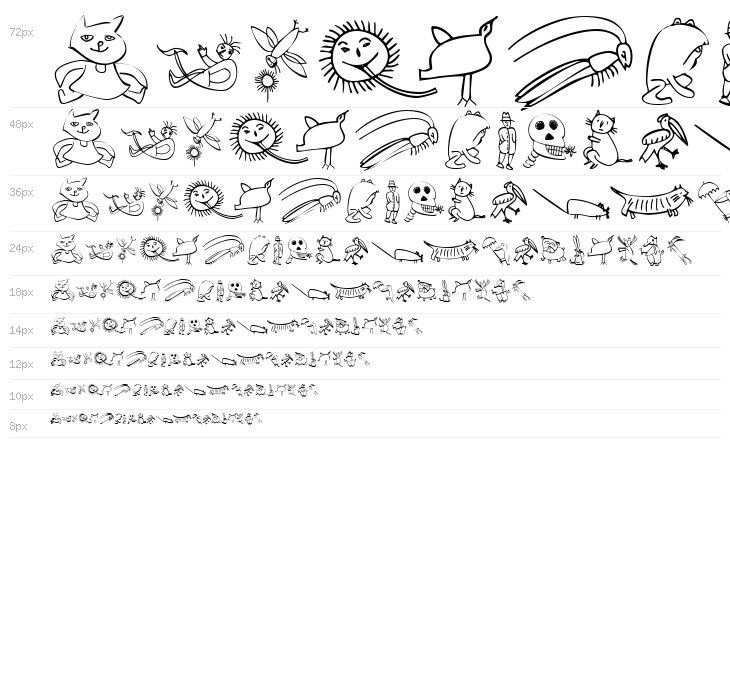 72px
48px
36px
24px
18px
14px
12px
10px
8px